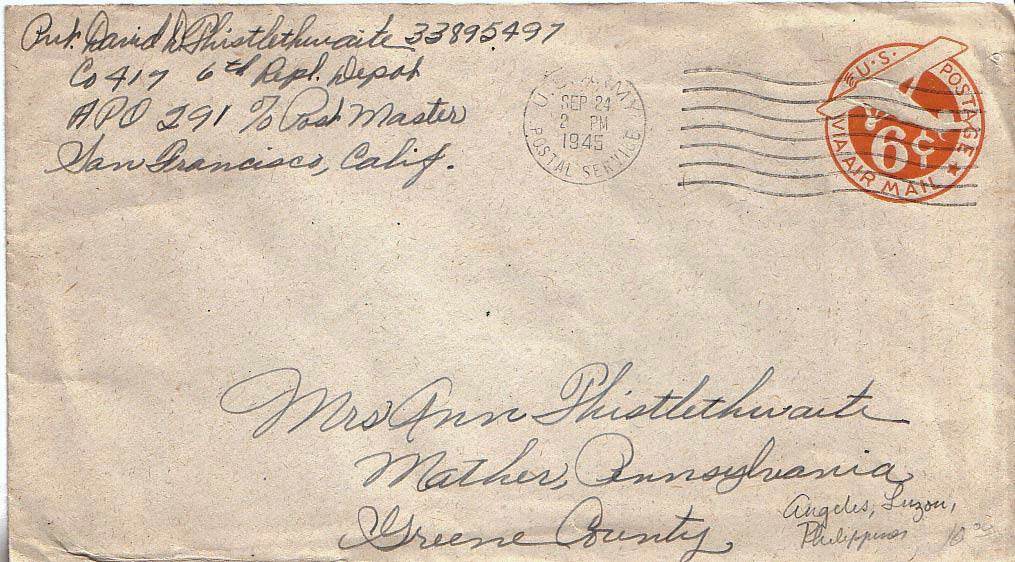 Pvt. David D. Phistlethwaite 33895497
Co 417 6th Repl. Depot
APO 291 % Post Master
San Francisco, Calif.
U.S. ARMY
SEP 24
2 PM
1945
POSTAL SERVICE
U.S. POSTAGE
6¢
VIA AIR MAIL
Mrs Ann Phistlethwaite
Mather, Pennsylvania
Greene County
Angeles, Luzon,
Philippines